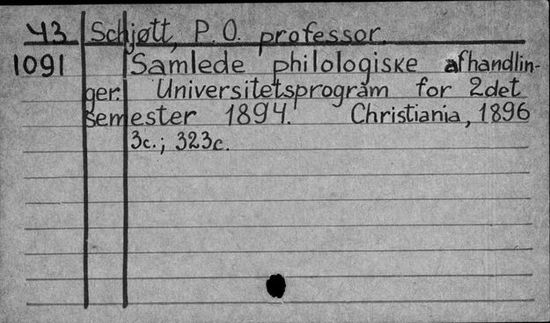 43 Schjøtt, P. O. professor.
1091 Samlede philologiske afhandlin-
ger. Universitetsprogram for 2det
semester 1894. Christiania, 1896
3c.; 323c.